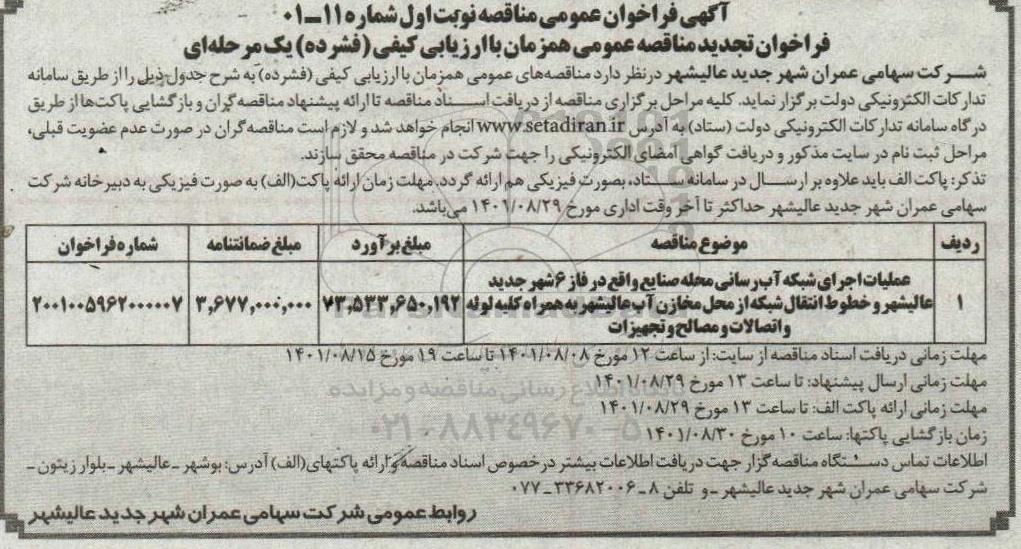 آگهی فراخوان عمومی مناقصه نوبت اول شماره ۱۱ـ۰۱
فراخوان تجدید مناقصه عمومی همزمان با ارزیابی کیفی (فشرده) یک مرحله‌ای
شرکت سهامی عمران شهر جدید عالیشهر در نظر دارد مناقصه‌های عمومی همزمان با ارزیابی کیفی (فشرده) به شرح جدول ذیل را از طریق سامانه
تدارکات الکترونیکی دولت برگزار نماید. کلیه مراحل برگزاری مناقصه از دریافت اسناد مناقصه تا ارائه پیشنهاد مناقصه‌گران و بازگشایی پاکت‌ها از طریق
درگاه سامانه تدارکات الکترونیکی دولت (ستاد) به آدرس www.setadiran.ir انجام خواهد شد و لازم است مناقصه‌گران در صورت عدم عضویت قبلی،
مراحل ثبت نام در سایت مذکور و دریافت گواهی امضای الکترونیکی را جهت شرکت در مناقصه محقق سازند.
تذکر: پاکت الف باید علاوه بر ارسال در سامانه ستاد، بصورت فیزیکی هم ارائه گردد. مهلت زمان ارائه پاکت(الف) به صورت فیزیکی به دبیرخانه شرکت
سهامی عمران شهر جدید عالیشهر حداکثر تا آخر وقت اداری مورخ ۱۴۰۱/۰۸/۲۹ می‌باشد.
ردیف موضوع مناقصه مبلغ برآورد مبلغ ضمانتنامه شماره فراخوان
عملیات اجرای شبکه آب رسانی محله صنایع واقع در فاز ۶ شهر جدید
۱ عالیشهر و خطوط انتقال شبکه از محل مخازن آب عالیشهر به همراه کلیه لوله ۷۳,۵۳۳,۶۵۰,۱۹۲ ۳,۶۷۷,۰۰۰,۰۰۰ ۲۰۰۱۰۰۵۹۶۲۰۰۰۰۰۷
و اتصالات و مصالح و تجهیزات
مهلت زمانی دریافت اسناد مناقصه از سایت: از ساعت ۱۲ مورخ ۱۴۰۱/۰۸/۰۸ تا ساعت ۱۹ مورخ ۱۴۰۱/۰۸/۱۵
مهلت زمانی ارسال پیشنهاد: تا ساعت ۱۳ مورخ ۱۴۰۱/۰۸/۲۹
مهلت زمانی ارائه پاکت الف: تا ساعت ۱۳ مورخ ۱۴۰۱/۰۸/۲۹
زمان بازگشایی پاکتها: ساعت ۱۰ مورخ ۱۴۰۱/۰۸/۳۰
اطلاعات تماس دستگاه مناقصه‌گزار جهت دریافت اطلاعات بیشتر در خصوص اسناد مناقصه و ارائه پاکتهای(الف) آدرس: بوشهر ـ عالیشهر ـ بلوار زیتون ـ
شرکت سهامی عمران شهر جدید عالیشهر ـ و تلفن ۸ ـ ۳۳۶۸۲۰۰۶ ـ ۰۷۷
روابط عمومی شرکت سهامی عمران شهر جدید عالیشهر